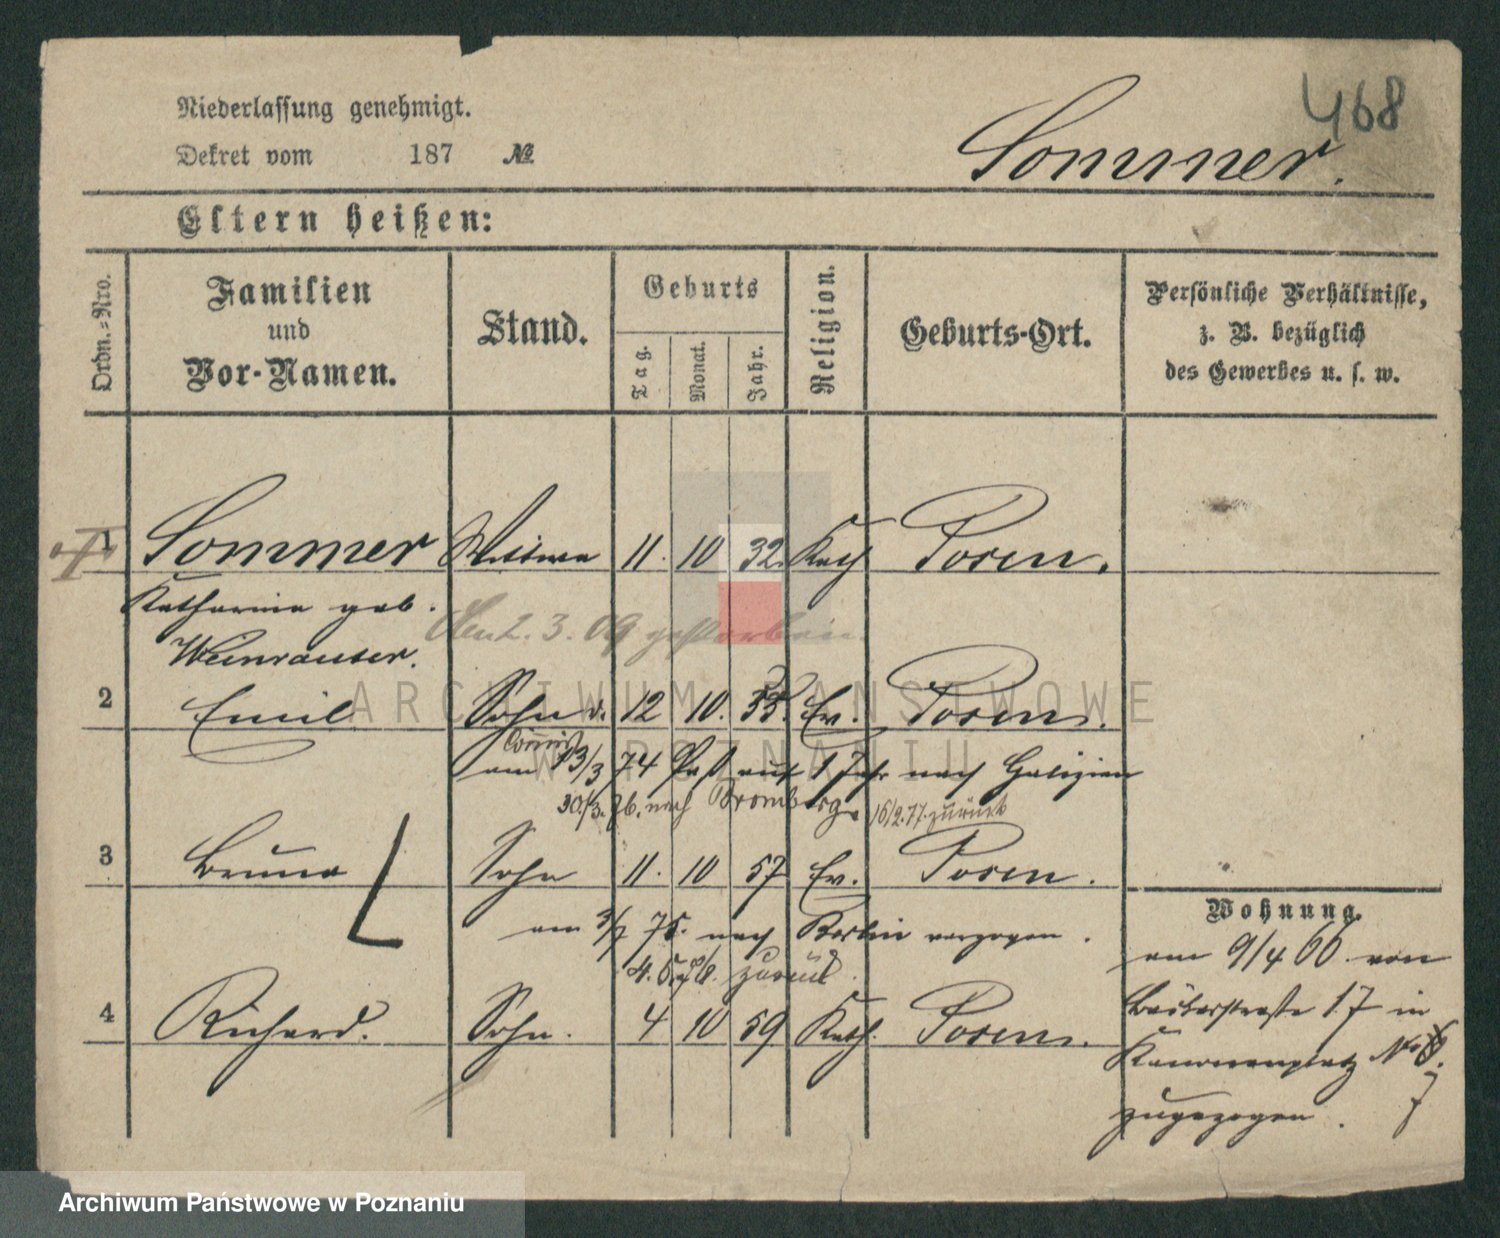 468
Niederlassung genehmigt.
Dekret vom 187 №
Sommer.
Eltern heißen:
Ordn.-Nro.
Familien und Vor-Namen.
Stand.
Geburts
Tag.
Monat.
Jahr.
Religion.
Geburts-Ort.
Persönliche Verhältnisse,
z. B. bezüglich
des Gewerbes u. s. w.
1 Sommer Wittwe 11. 10 32. Kath Posen.
Katharina geb.
2. 3. 09 gestorben.
ARCHIWUM PAŃSTWOWE
W POZNANIU
2 Emil Sohn 12 10. Ev. Posen.
am 13/3 74 Paß auf 1 Jahr nach Galizien
30/3. 76. nach Bromberg. 16/2.77. zurück
3 Bruno Sohn 11. 10 57 Ev. Posen.
am 75. nach Berlin verzogen.
zurück.
4 Richard. Sohn. 4 10 59 Kath. Posen.
Wohnung.
am 9/4 66 von
17 in
Kanonenplatz No
zugezogen.
7
Archiwum Państwowe w Poznaniu